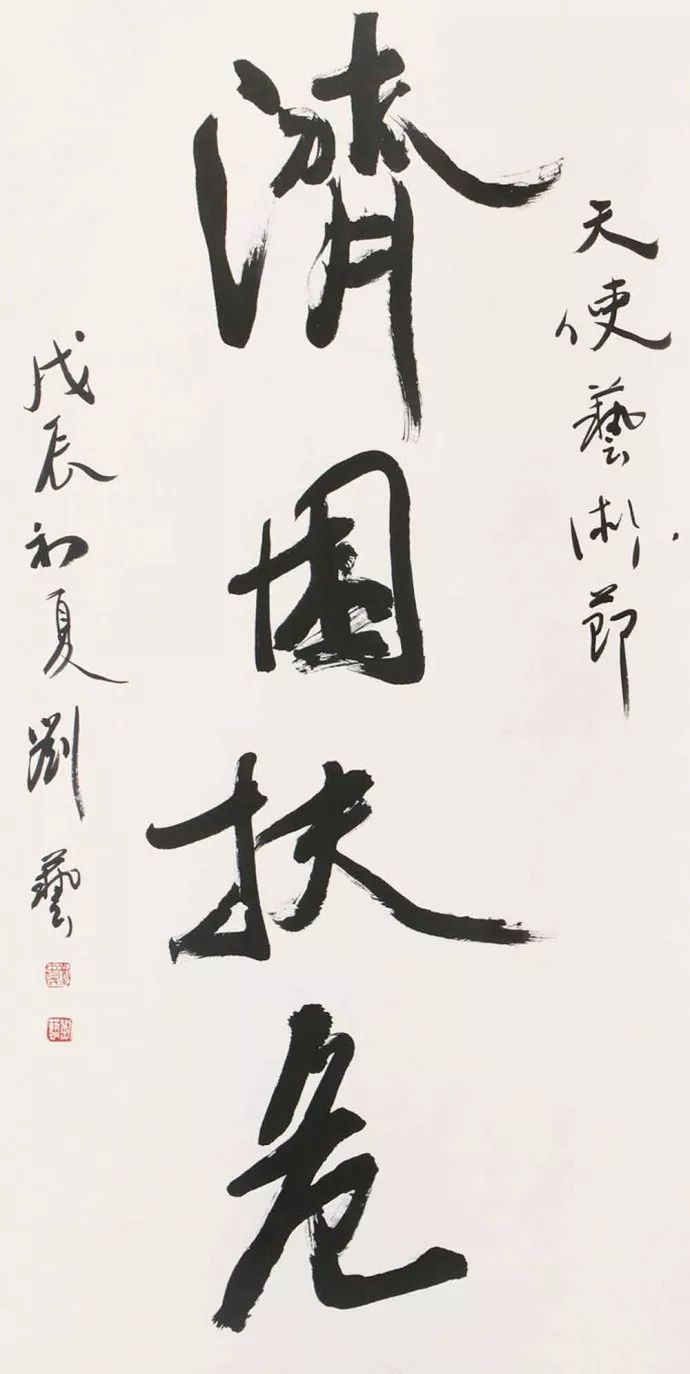 天使藝術節
濟困扶危
戊辰初夏劉藝